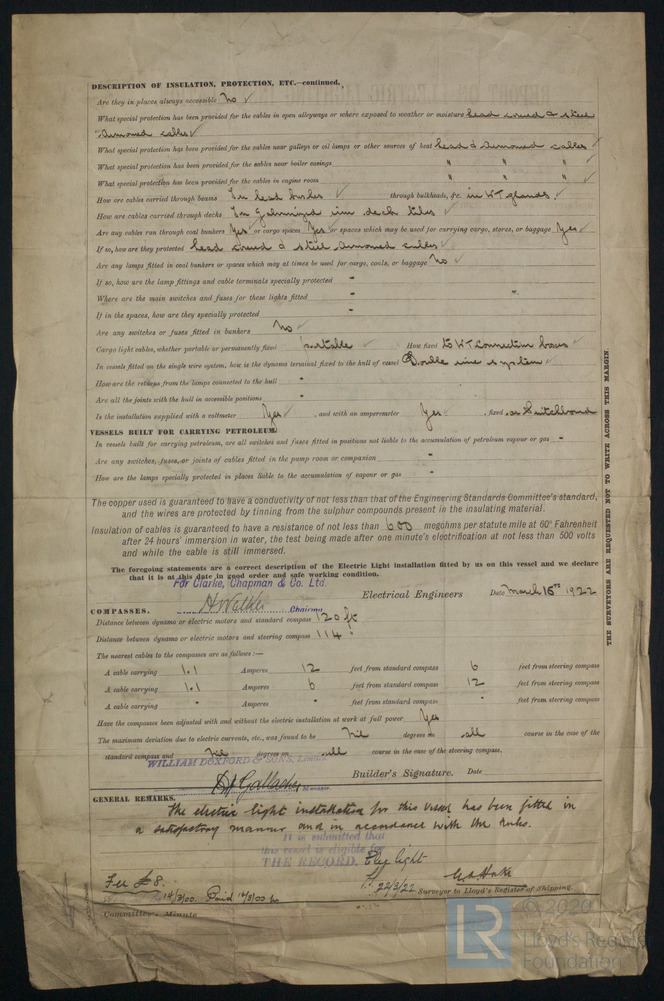 DESCRIPTION OF INSULATION, PROTECTION, ETC.—continued.
Are they in places always accessible No ✓
What special protection has been provided for the cables in open alleyways or where exposed to weather or moisture Lead covered & steel
armoured cables ✓
What special protection has been provided for the cables near galleys or oil lamps or other sources of heat Lead & Armoured cables ✓
What special protection has been provided for the cables near boiler casings " " " ✓
What special protection has been provided for the cables in engine room " " " ✓
How are cables carried through beams In lead bushes ✓ through bulkheads, &c. in W T glands. ✓
How are cables carried through decks In Galvanized iron deck tubes ✓
Are any cables run through coal bunkers Yes ✓ or cargo spaces Yes ✓ or spaces which may be used for carrying cargo, stores, or baggage Yes ✓
If so, how are they protected Lead covered & steel Armoured cables ✓
Are any lamps fitted in coal bunkers or spaces which may at times be used for cargo, coals, or baggage No ✓
If so, how are the lamp fittings and cable terminals specially protected "
Where are the main switches and fuses for these lights fitted " "
If in the spaces, how are they specially protected "
Are any switches or fuses fitted in bunkers No ✓
Cargo light cables, whether portable or permanently fixed portable ✓ How fixed to W T Connection boxes ✓
In vessels fitted on the single wire system, how is the dynamo terminal fixed to the hull of vessel Double wire system ✓
How are the returns from the lamps connected to the hull "
Are all the joints with the hull in accessible positions "
Is the installation supplied with a voltmeter Yes ✓ , and with an amperemeter Yes ✓ , fixed on Switchboard
VESSELS BUILT FOR CARRYING PETROLEUM.
In vessels built for carrying petroleum, are all switches and fuses fitted in positions not liable to the accumulation of petroleum vapour or gas "
Are any switches, fuses, or joints of cables fitted in the pump room or companion "
How are the lamps specially protected in places liable to the accumulation of vapour or gas "
The copper used is guaranteed to have a conductivity of not less than that of the Engineering Standards Committee's standard,
and the wires are protected by tinning from the sulphur compounds present in the insulating material.
Insulation of cables is guaranteed to have a resistance of not less than 600 megohms per statute mile at 60° Fahrenheit
after 24 hours' immersion in water, the test being made after one minute's electrification at not less than 500 volts
and while the cable is still immersed.
The foregoing statements are a correct description of the Electric Light installation fitted by us on this vessel and we declare
that it is at this date in good order and safe working condition.
For Clarke, Chapman & Co. Ltd.
Electrical Engineers Date March 16th 1922
COMPASSES.
Distance between dynamo or electric motors and standard compass 120 ft
Distance between dynamo or electric motors and steering compass 114 "
The nearest cables to the compasses are as follows:—
A cable carrying 1.1 Amperes 12 feet from standard compass 6 feet from steering compass
A cable carrying 1.1 Amperes 6 feet from standard compass 12 feet from steering compass
A cable carrying " Amperes " feet from standard compass " feet from steering compass
Have the compasses been adjusted with and without the electric installation at work at full power Yes
The maximum deviation due to electric currents, etc., was found to be Nil degrees on all course in the case of the
standard compass and Nil degrees on all course in the case of the steering compass.
WILLIAM DOXFORD & SONS, Limited
Builder's Signature. Date
GENERAL REMARKS.
The electric light installation for this vessel has been fitted in
a satisfactory manner and in accordance with the rules.
It is submitted that
this vessel is eligible for
THE RECORD. Elec light
22/3/22
Surveyor to Lloyd's Register of Shipping.
Fee £8.
Committee's Minute
THE SURVEYORS ARE REQUESTED NOT TO WRITE ACROSS THIS MARGIN.
LR
© 2020
Lloyd's Register
Foundation